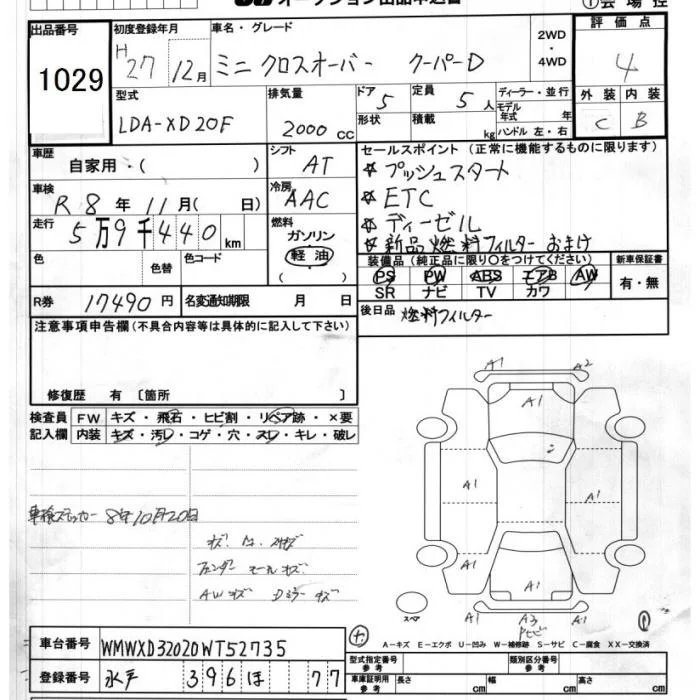 オークション出品申込書
①会場控
出品番号 1029
初度登録年月 H27 12月
車名・グレード ミニ クロスオーバー クーパーD
2WD・4WD
評価点 4
外装 C 内装 B
型式 LDA-XD20F
排気量 2000 cc
ドア 5 形状
定員 5人 積載 kg
ディーラー・並行
モデル年式 年
ハンドル 左・右
車歴 自家用・( )
シフト AT
車検 R8年11月( 日)
冷房 AAC
走行 5万9千440km
燃料 ガソリン 軽油 ( )
色 色替 色コード
R券 17490円
名変通知期限 月 日
セールスポイント(正常に機能するものに限ります)
☆プッシュスタート
☆ETC
☆ディーゼル
☆新品燃料フィルターおまけ
装備品(純正品に限り○をつけてください)
PS PW ABS エアB AW
SR ナビ TV カワ
新車保証書 有・無
後日品 燃料フィルター
注意事項申告欄(不具合内容等は具体的に記入して下さい)
修復歴 有 〔箇所 〕
検査員記入欄
FW キズ・飛石・ヒビ割・リペア跡・×要
内装 キズ・汚レ・コゲ・穴・スレ・キレ・破レ
車検ステッカー 8年10月20日
フェンダー モールキズ
AWキズ Dミラーキズ
A1 A2
A1
A1 A1
A1 A1 A1
A1 A3 A1
スペア
A-キズ E-エクボ U-凹み W-補修跡 S-サビ C-腐食 XX-交換済
車台番号 WMWXD32020WT52735
登録番号 水戸 396 ほ 77
型式指定番号 参考
類別区分番号 参考
車庫証明 参考 長さ cm 幅 cm 高さ cm